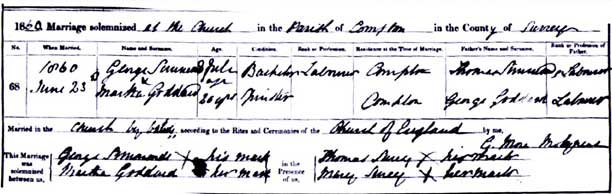 1860 Marriage solemnized at the Church in the Parish of Compton in the County of Surrey
No. When Married. Name and Surname. Age Condition. Rank or Profession. Residence at the Time of Marriage. Father's Name and Surname. Rank or Profession of Father.
68
1860 George Full age Bachelor Labourer Compton Thomas Labourer
June 23 Martha Goddard 20 yrs Spinster Compton George Goddard Labourer
Married in the Church by according to the Rites and Ceremonies of the Church of England by me,
G. More Molyneux
This Marriage was solemnized between us, George X his mark in the Presence of us, Thomas X his mark
Martha Goddard her mark Mary X her mark